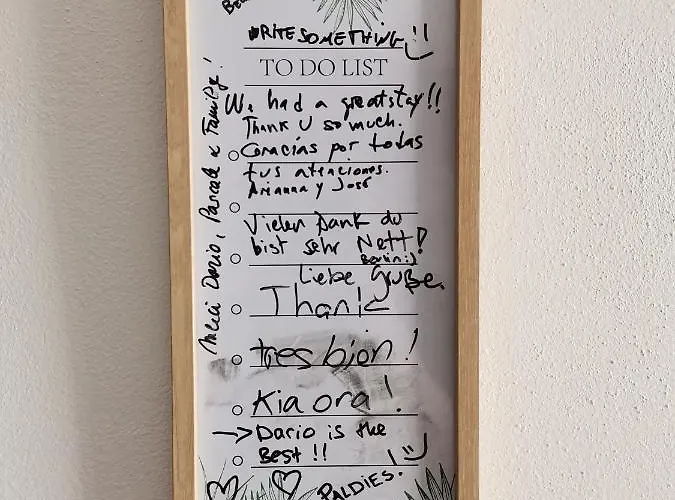 WRITE SOMETHING
TO DO LIST
We had a great stay!!
Thank U so much.
Gracias por todas
tus atenciones.
Arianna y José
Vielen Dank du
bist sehr Nett!
Berlin :)
Liebe Grüße
Thank
très bien !
Kia ora !
→ Dario is the
Best !!
PALDIES.
Merci Dario, Pascale & Family!